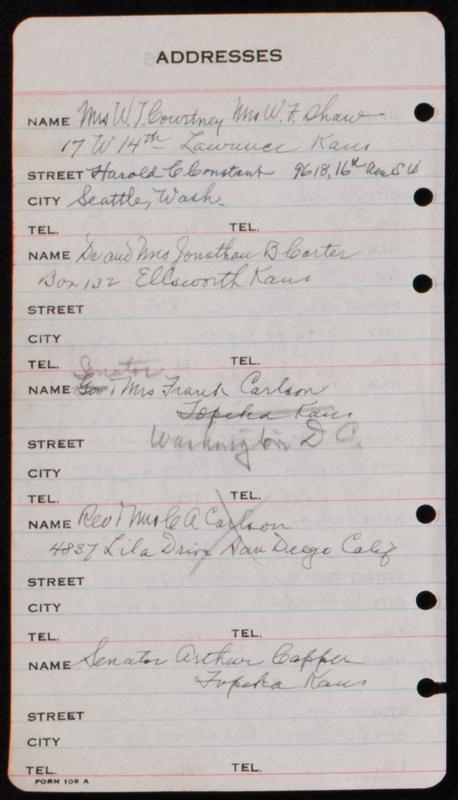 ADDRESSES
NAME Mrs W. T. Courtney Mrs W. F. Shaw
17 W 14th Lawrence Kans
STREET Harold C Constant 9618, 16th Ave S W
CITY Seattle, Wash.
TEL. TEL.
NAME Dr and Mrs Jonathan B Carter
Box 132 Ellsworth Kans
STREET
CITY
TEL. Senator TEL.
NAME Gov & Mrs Frank Carlson
Topeka Kans
STREET Washington D C.
CITY
TEL. TEL.
NAME Rev & Mrs C A Carlson
4837 Lila Drive San Diego Calif
STREET
CITY
TEL. TEL.
NAME Senator Arthur Capper
Topeka Kans
STREET
CITY
TEL. TEL.
FORM 109 A